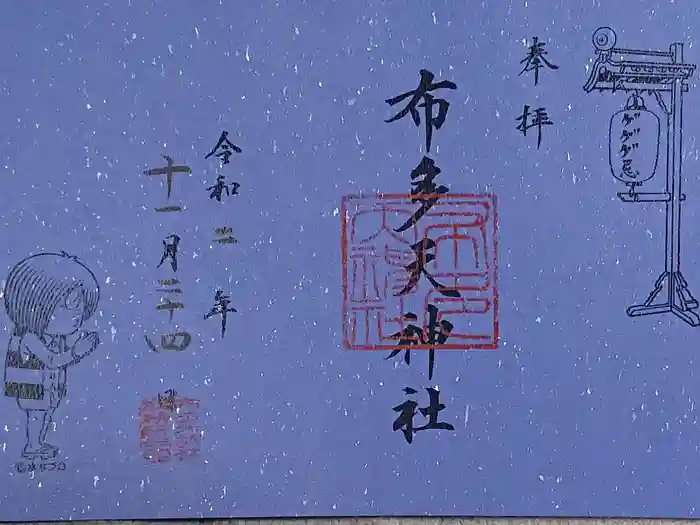 奉拝
ゲゲゲ忌
布多天神社
令和二年
十一月二十四日
©水木プロ